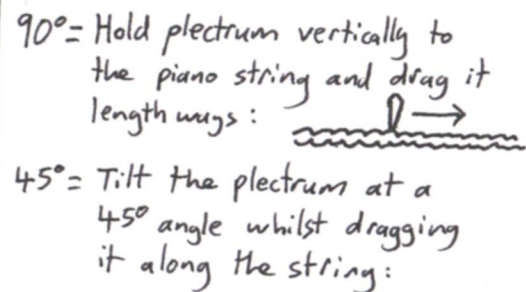 90°= Hold plectrum vertically to
the piano string and drag it
length ways :
45°= Tilt the plectrum at a
45° angle whilst dragging
it along the string :